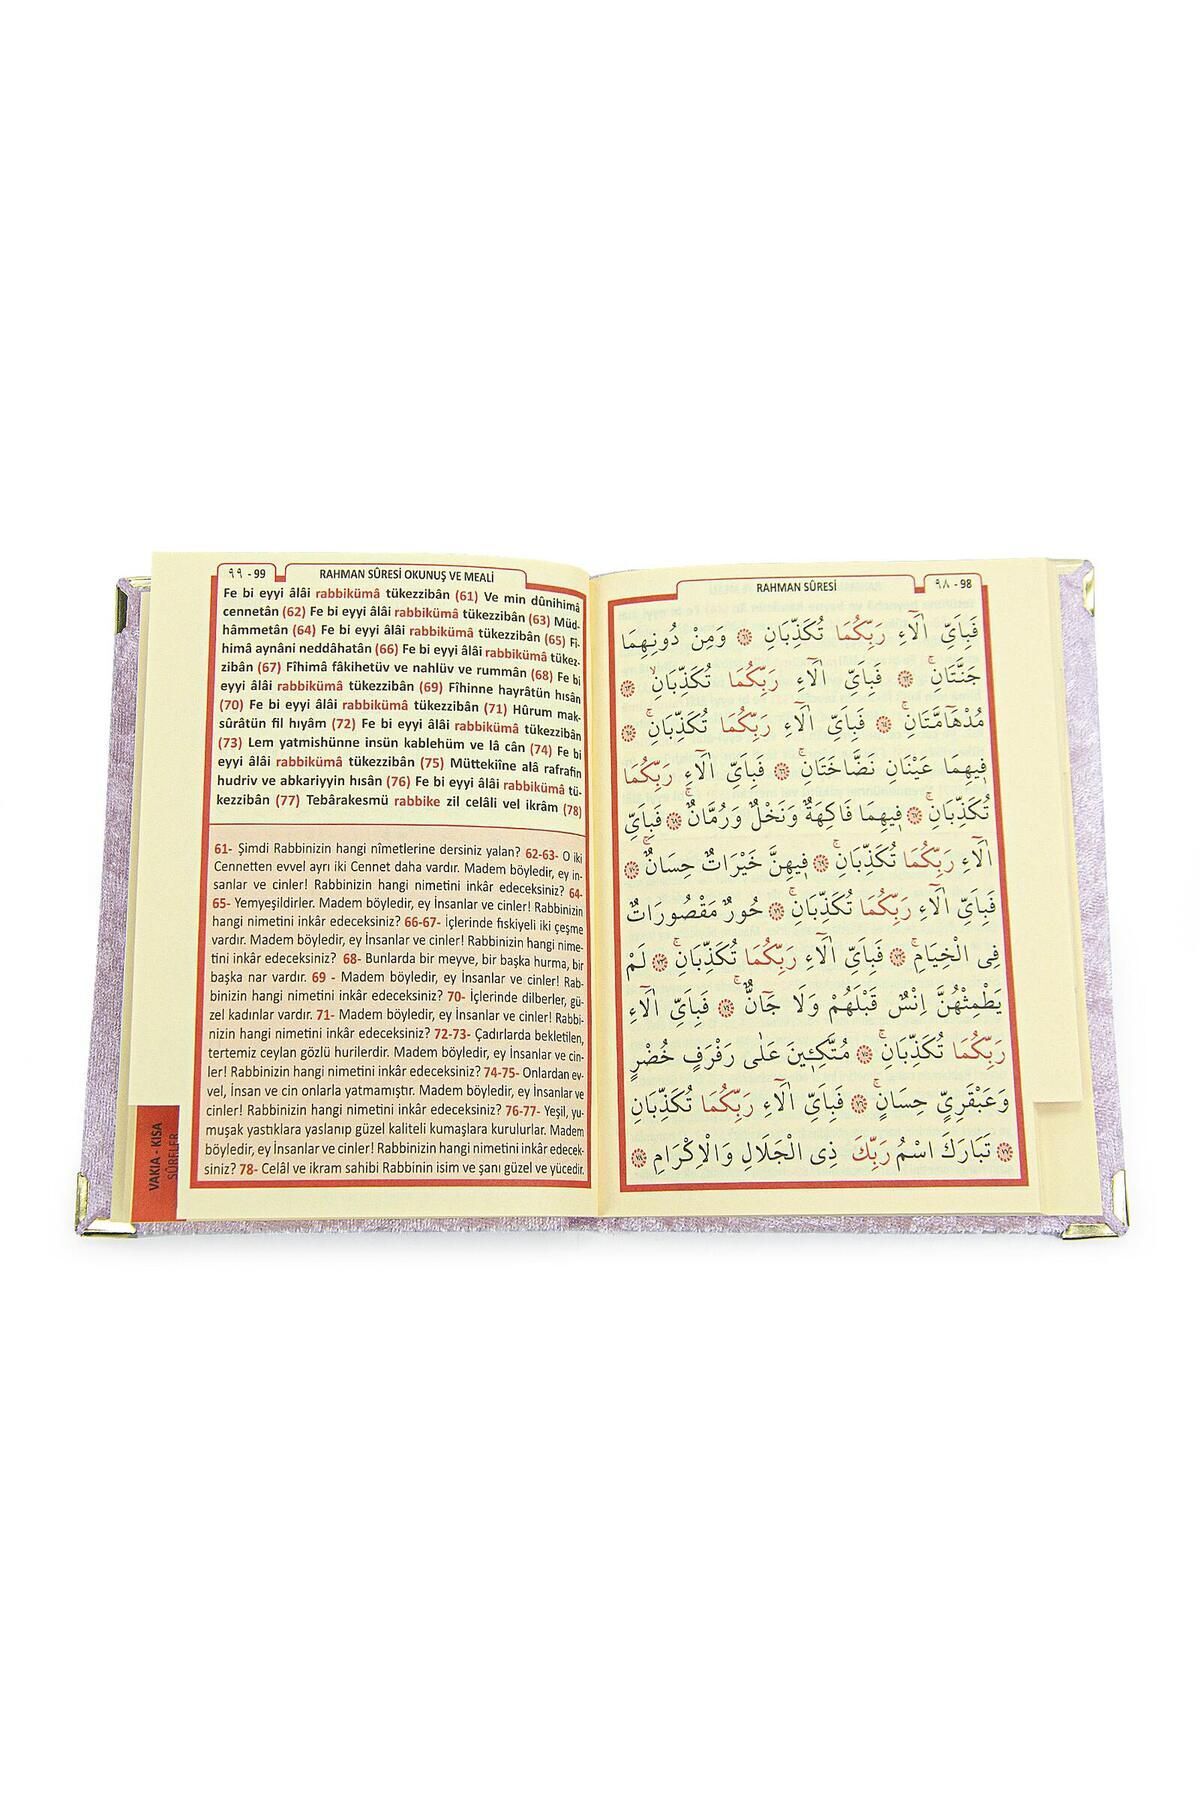 ٩٩ - 99
RAHMAN SÛRESİ OKUNUŞ VE MEALİ
Fe bi eyyi âlâi rabbikümâ tükezzibân (61) Ve min dûnihimâ
cennetân (62) Fe bi eyyi âlâi rabbikümâ tükezzibân (63) Müd-
hâmmetân (64) Fe bi eyyi âlâi rabbikümâ tükezzibân (65) Fî-
himâ aynâni neddâhatân (66) Fe bi eyyi âlâi rabbikümâ tükez-
zibân (67) Fîhimâ fâkihetüv ve nahlüv ve rummân (68) Fe bi
eyyi âlâi rabbikümâ tükezzibân (69) Fîhinne hayrâtün hısân
(70) Fe bi eyyi âlâi rabbikümâ tükezzibân (71) Hûrum mak-
sûrâtün fil hıyâm (72) Fe bi eyyi âlâi rabbikümâ tükezzibân
(73) Lem yatmishünne insün kablehüm ve lâ cân (74) Fe bi
eyyi âlâi rabbikümâ tükezzibân (75) Müttekiîne alâ rafrafin
hudriv ve abkariyyin hısân (76) Fe bi eyyi âlâi rabbikümâ tü-
kezzibân (77) Tebârakesmü rabbike zil celâli vel ikrâm (78)
61- Şimdi Rabbinizin hangi nîmetlerine dersiniz yalan? 62-63- O iki
Cennetten evvel ayrı iki Cennet daha vardır. Madem böyledir, ey in-
sanlar ve cinler! Rabbinizin hangi nimetini inkâr edeceksiniz? 64-
65- Yemyeşildirler. Madem böyledir, ey İnsanlar ve cinler! Rabbinizin
hangi nimetini inkâr edeceksiniz? 66-67- İçlerinde fiskiyeli iki çeşme
vardır. Madem böyledir, ey İnsanlar ve cinler! Rabbinizin hangi nime-
tini inkâr edeceksiniz? 68- Bunlarda bir meyve, bir başka hurma, bir
başka nar vardır. 69 - Madem böyledir, ey İnsanlar ve cinler! Rab-
binizin hangi nimetini inkâr edeceksiniz? 70- İçlerinde dilberler, gü-
zel kadınlar vardır. 71- Madem böyledir, ey İnsanlar ve cinler! Rabbi-
nizin hangi nimetini inkâr edeceksiniz? 72-73- Çadırlarda bekletilen,
tertemiz ceylan gözlü hurilerdir. Madem böyledir, ey İnsanlar ve cin-
ler! Rabbinizin hangi nimetini inkâr edeceksiniz? 74-75- Onlardan ev-
vel, İnsan ve cin onlarla yatmamıştır. Madem böyledir, ey İnsanlar ve
cinler! Rabbinizin hangi nimetini inkâr edeceksiniz? 76-77- Yeşil, yu-
muşak yastıklara yaslanıp güzel kaliteli kumaşlara kurulurlar. Madem
böyledir, ey İnsanlar ve cinler! Rabbinizin hangi nimetini inkâr edecek-
siniz? 78- Celâl ve ikram sahibi Rabbinin isim ve şanı güzel ve yücedir.
VAKIA - KISA
SÛRELER
RAHMAN SÛRESİ
٩٨ - 98
فَبِاَيِّ اٰلَٓاءِ رَبِّكُمَا تُكَذِّبَانِ ﴿٦١﴾ وَمِنْ دُونِهِمَا
جَنَّتَانِۚ ﴿٦٢﴾ فَبِاَيِّ اٰلَٓاءِ رَبِّكُمَا تُكَذِّبَانِۙ ﴿٦٣﴾
مُدْهَٓامَّتَانِۚ ﴿٦٤﴾ فَبِاَيِّ اٰلَٓاءِ رَبِّكُمَا تُكَذِّبَانِۚ ﴿٦٥﴾
فٖيهِمَا عَيْنَانِ نَضَّاخَتَانِۚ ﴿٦٦﴾ فَبِاَيِّ اٰلَٓاءِ رَبِّكُمَا
تُكَذِّبَانِۚ ﴿٦٧﴾ فٖيهِمَا فَاكِهَةٌ وَنَخْلٌ وَرُمَّانٌۚ ﴿٦٨﴾ فَبِاَيِّ
اٰلَٓاءِ رَبِّكُمَا تُكَذِّبَانِۚ ﴿٦٩﴾ فٖيهِنَّ خَيْرَاتٌ حِسَانٌۚ ﴿٧٠﴾
فَبِاَيِّ اٰلَٓاءِ رَبِّكُمَا تُكَذِّبَانِۚ ﴿٧١﴾ حُورٌ مَقْصُورَاتٌ
فِى الْخِيَامِۚ ﴿٧٢﴾ فَبِاَيِّ اٰلَٓاءِ رَبِّكُمَا تُكَذِّبَانِۚ ﴿٧٣﴾ لَمْ
يَطْمِثْهُنَّ اِنْسٌ قَبْلَهُمْ وَلَا جَٓانٌّۚ ﴿٧٤﴾ فَبِاَيِّ اٰلَٓاءِ
رَبِّكُمَا تُكَذِّبَانِۚ ﴿٧٥﴾ مُتَّكِـٖٔينَ عَلٰى رَفْرَفٍ خُضْرٍ
وَعَبْقَرِيٍّ حِسَانٍۚ ﴿٧٦﴾ فَبِاَيِّ اٰلَٓاءِ رَبِّكُمَا تُكَذِّبَانِ
﴿٧٧﴾ تَبَارَكَ اسْمُ رَبِّكَ ذِى الْجَلَالِ وَالْاِكْرَامِ ﴿٧٨﴾